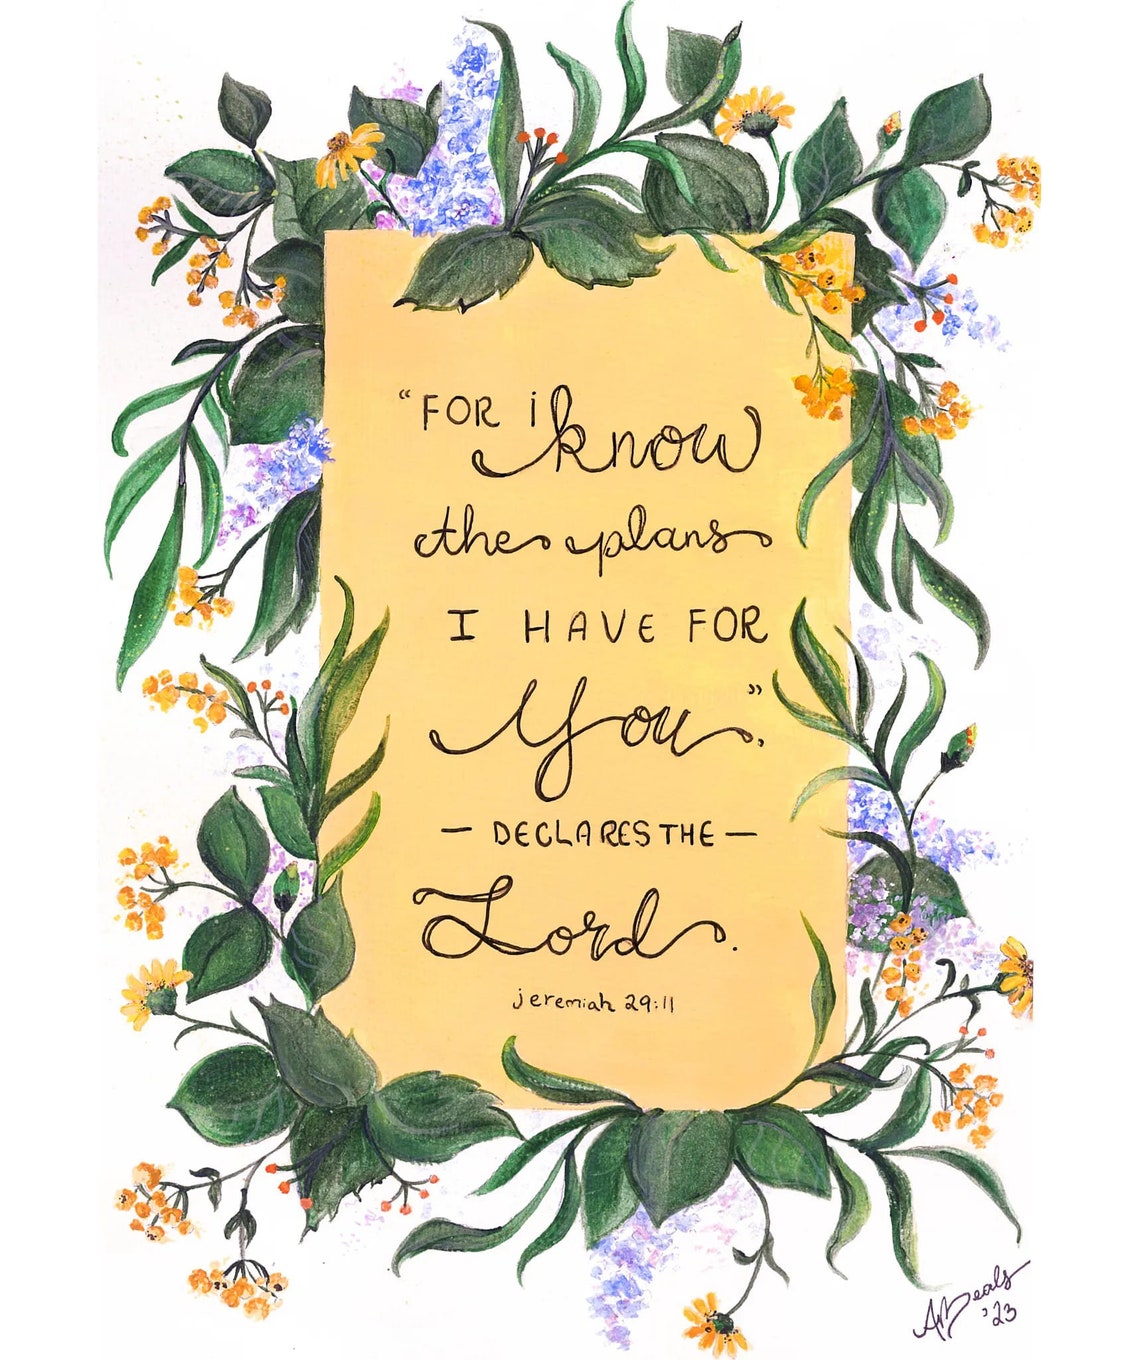 “FOR i know
the plans
I HAVE FOR
You,”
— DECLARES THE —
Lord.
jeremiah 29:11
ABeals
'23